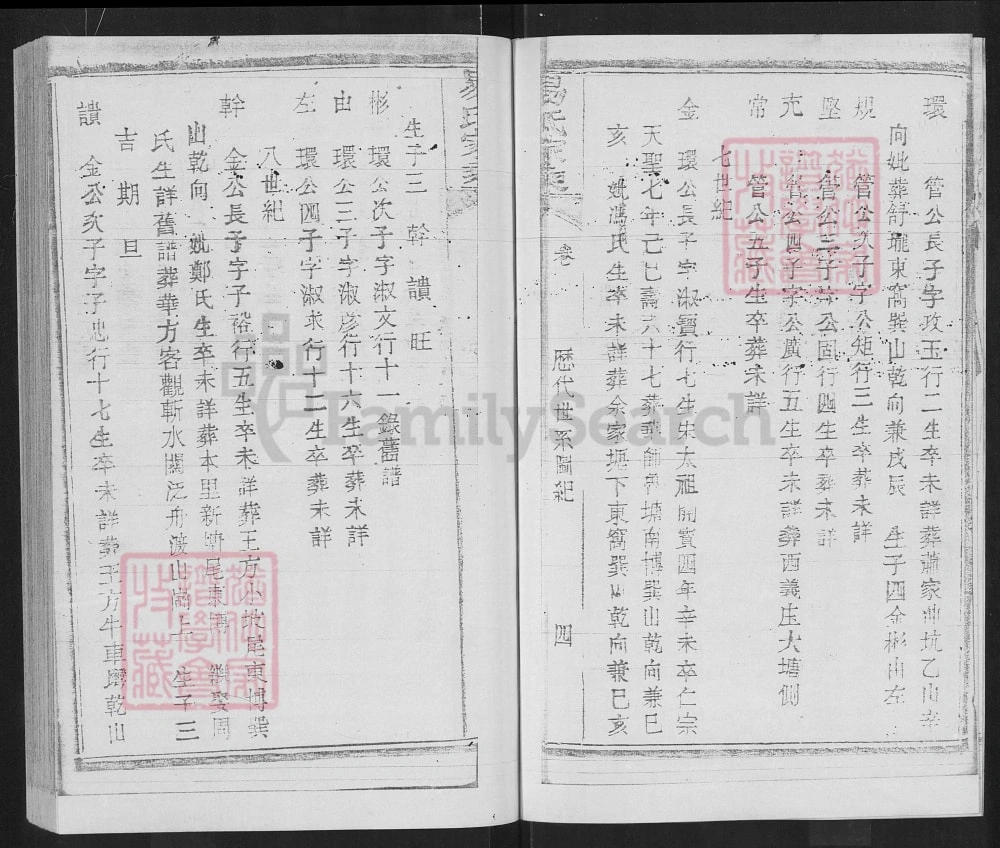 環 管公長子字玫玉行二生卒未詳葬蕭家曲坑乙山辛
向妣葬舒壠東窩巽山乾向兼戌辰 生子四金彬由左
規 管公次子字公矩行三生卒葬未詳
堅 管公三子字公固行四生卒葬未詳
充 管公四子字公廣行五生卒未詳葬西義庄大塘側
常 管公五子生卒葬未詳
七世紀
金 環公長子字淑寶行七生宋太祖開寶四年辛未卒仁宗
天聖七年己巳壽六十七葬 塘南博巽山乾向兼巳
亥 妣馮氏生卒未詳葬余家堰下東窩巽山乾向兼巳亥
易氏家乘
卷
歷代世系圖紀
四
生子三 幹 讃 旺
彬 環公次子字淑文行十一錄舊譜
由 環公三子字淑彥行十六生卒葬未詳
左 環公四子字淑求行十二生卒葬未詳
八世紀
幹 金公長子字子裕行五生卒未詳葬王方小坡尾東博巽
山乾向 妣鄭氏生卒未詳葬本里新 尾東博 繼娶周
氏生詳舊譜葬華方客觀斬水關泛舟渡山崗上 生子三
吉 期 旦
讃 金公次子字子忠行十七生卒未詳葬王方牛車 乾山
FamilySearch